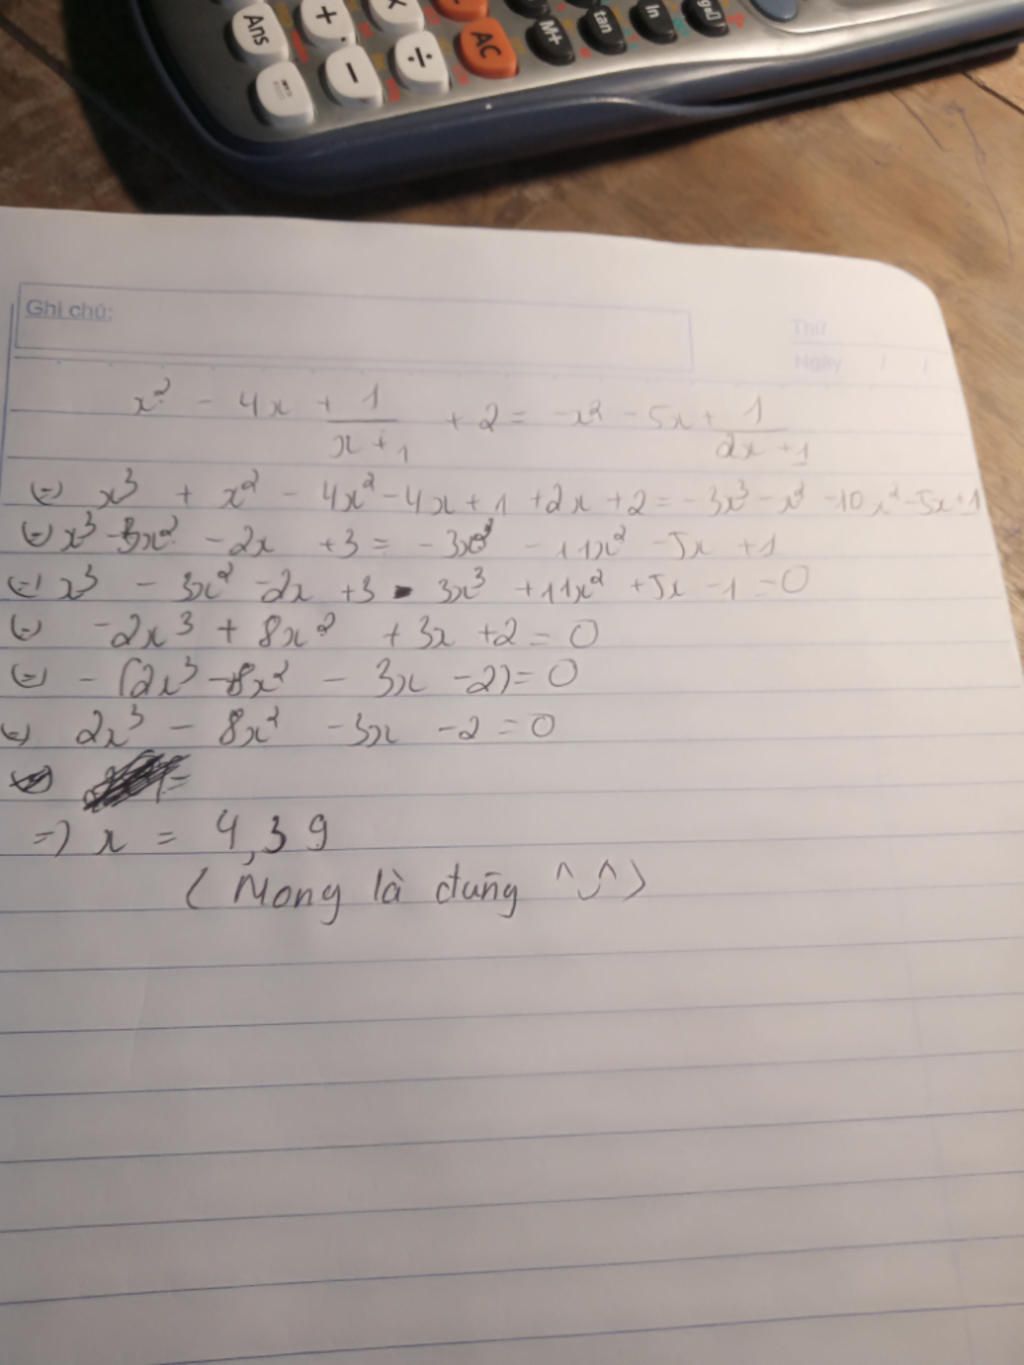 Ans + × AC M+ tan ln
− ÷
Ghi chú:
Thứ
Ngày / /
x² - 4x + 1/(x+1) + 2 = -x² - 5x + 1/(2x+1)
(=) x³ + x² - 4x² - 4x + 1 + 2x + 2 = -3x³ - x² - 10x² - 5x + 1
(=) x³ - 3x² - 2x + 3 = -3x³ - 11x² - 5x + 1
(=) x³ - 3x² - 2x + 3 - 3x³ + 11x² + 5x - 1 = 0
(=) -2x³ + 8x² + 3x + 2 = 0
(=) -(2x³ - 8x² - 3x - 2) = 0
(=) 2x³ - 8x² - 3x - 2 = 0
=) x = 4,39
(Mong là đúng ^‿^)